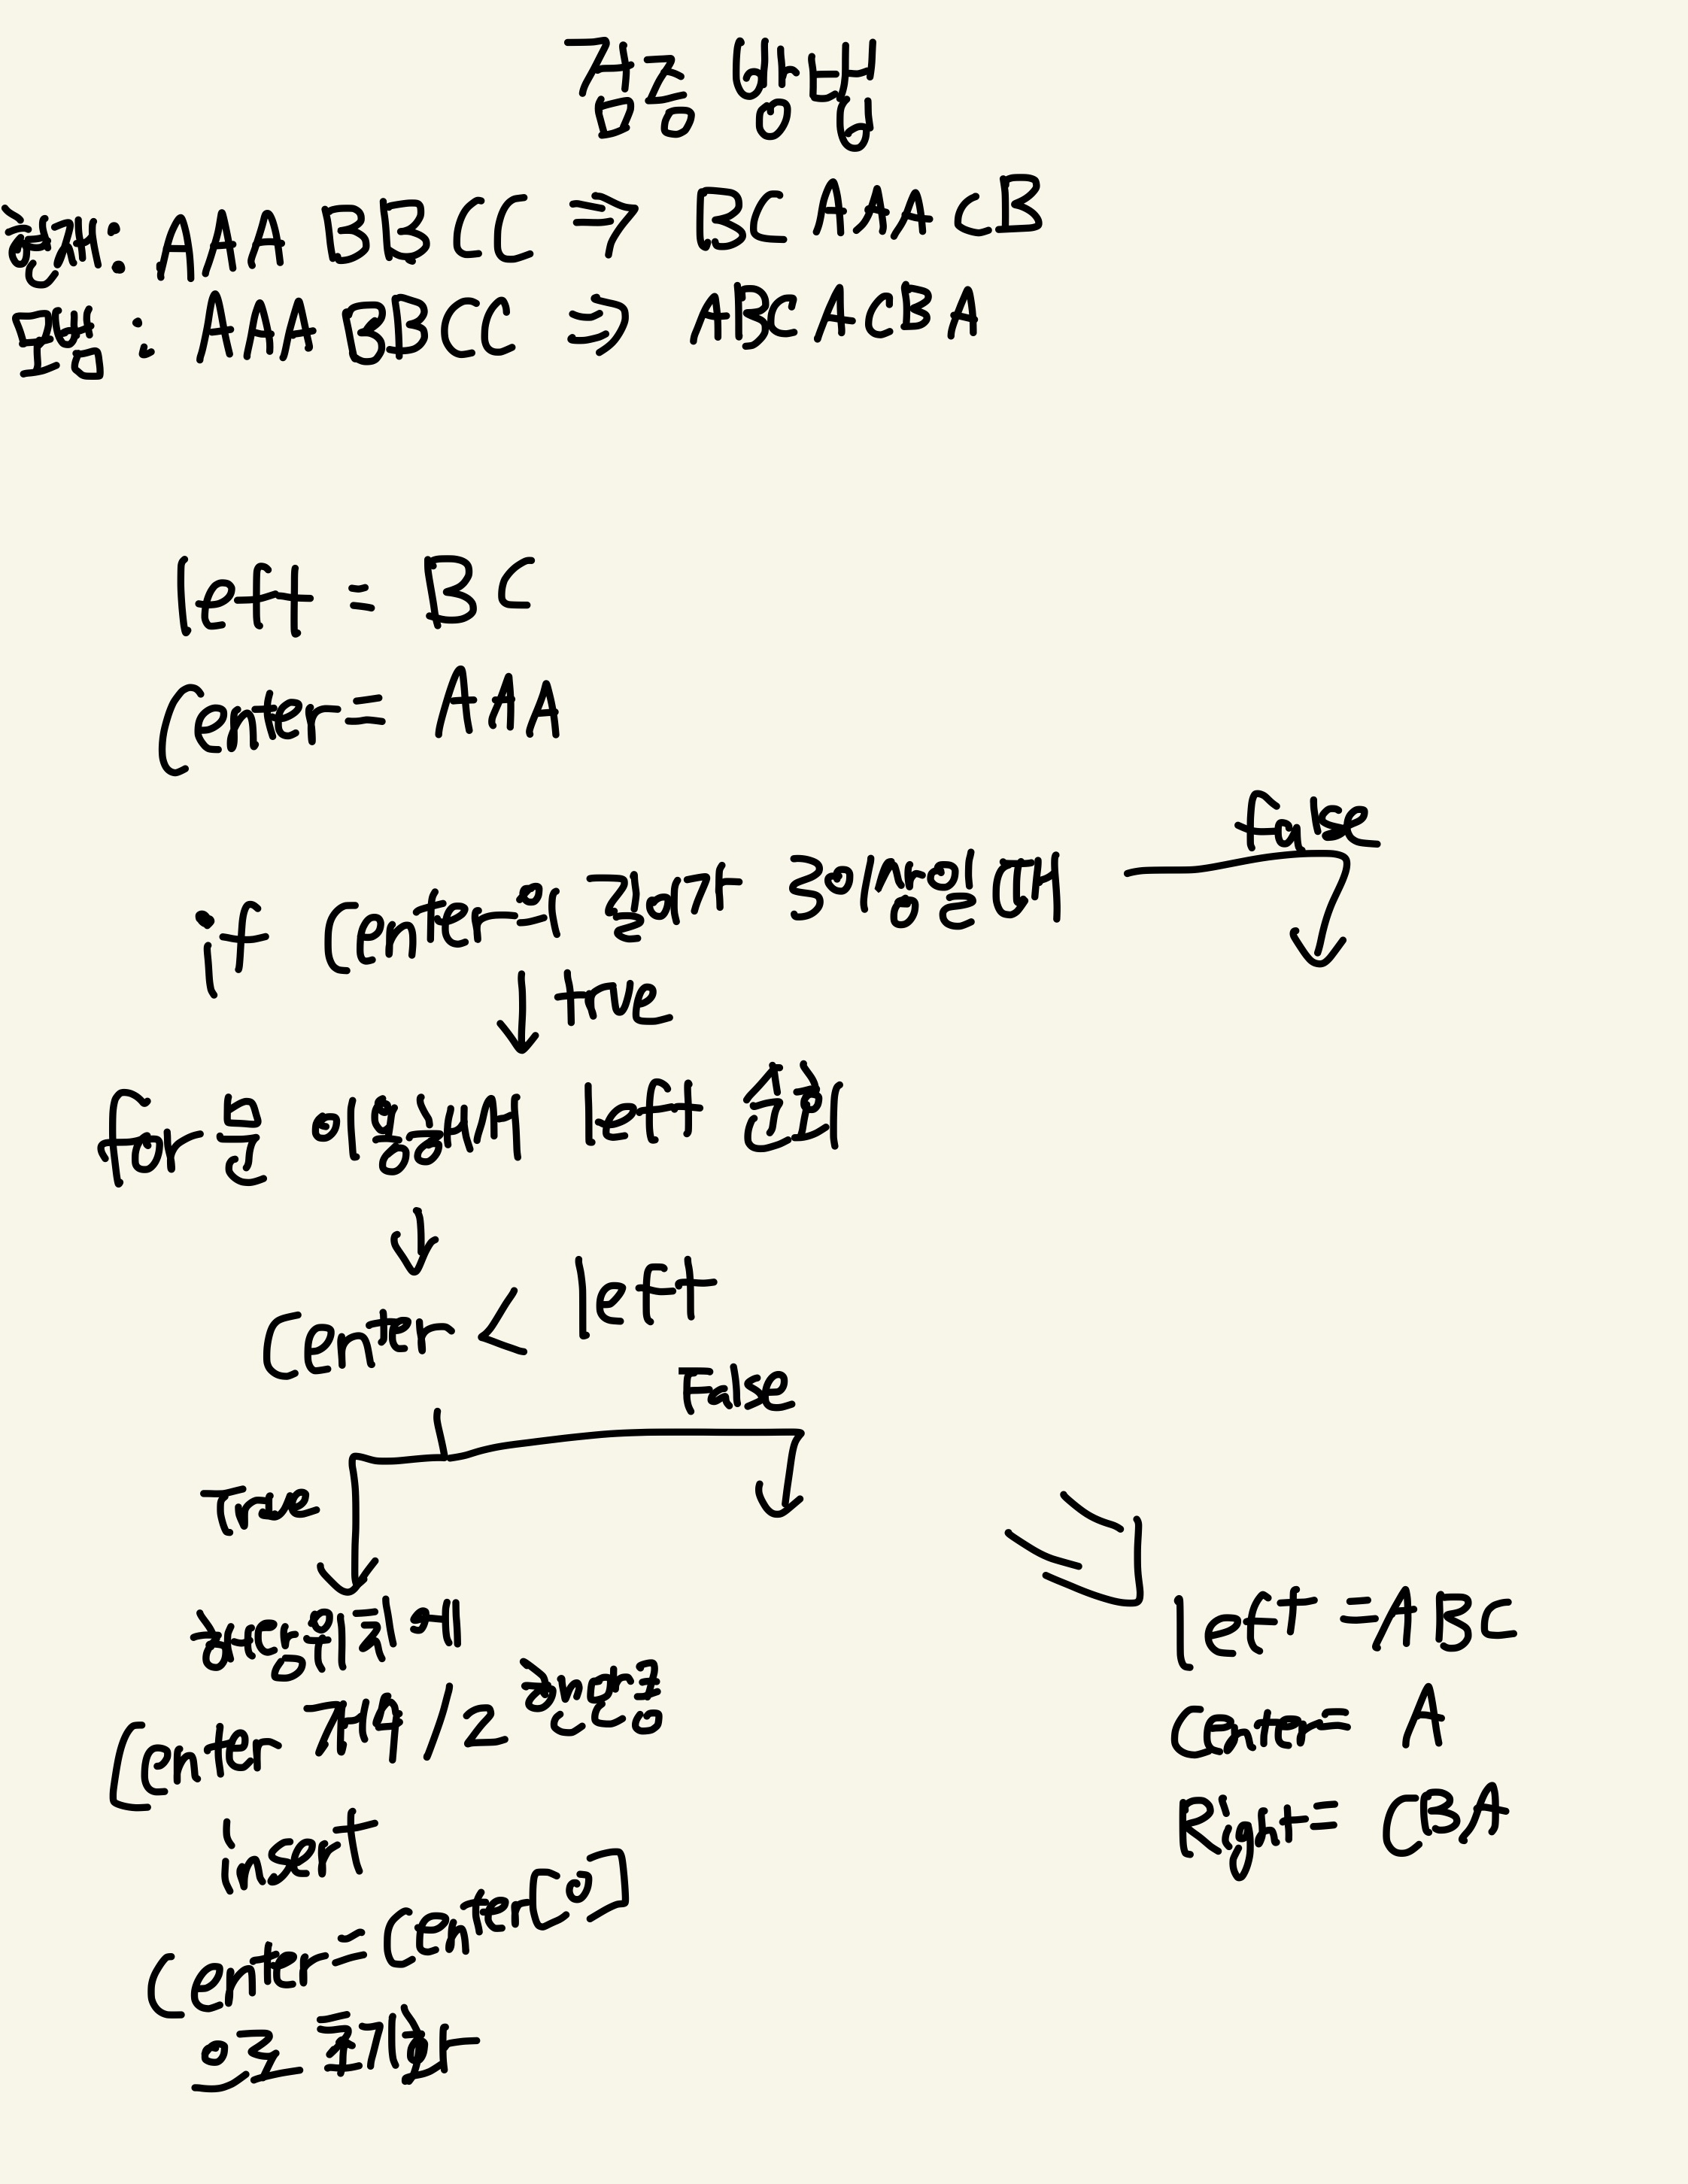 검증 방법
현재: AAABBCC ⇒ BCAAACB
모범: AAABBCC ⇒ ABCACBA
left = BC
Center = AAA
false
if Center의 길이가 3이상일때
true
for문 이용해서 left 순회
Center < left
False
True
해당위치에
Center 개수/2 한만큼
insert
Center = Center[0]
으로 초기화
left = ABC
Center = A
Right = CBA